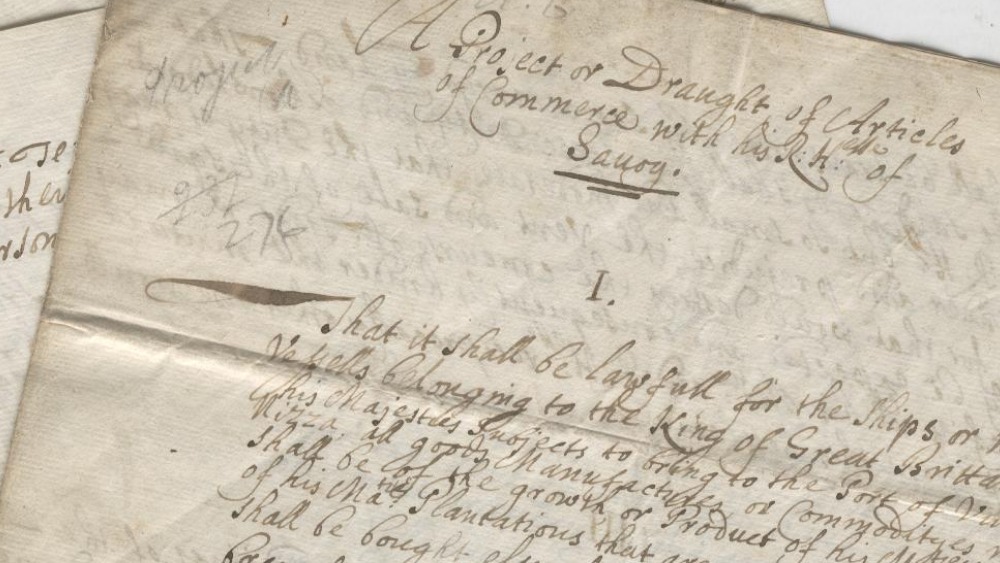 A Project or Draught of Articles
of Commerce with his R: H: of
Savoy.
274
I.
That it shall be lawfull for the Ships, or
Vessells belonging to the King of Great Britta
his Majesties Subjects to bring to the Port of
Nizza all goods Manufactures or Commodityes
shall be of the growth or Product of his
of his Maties Plantations that are
shall be bought
ther
rson